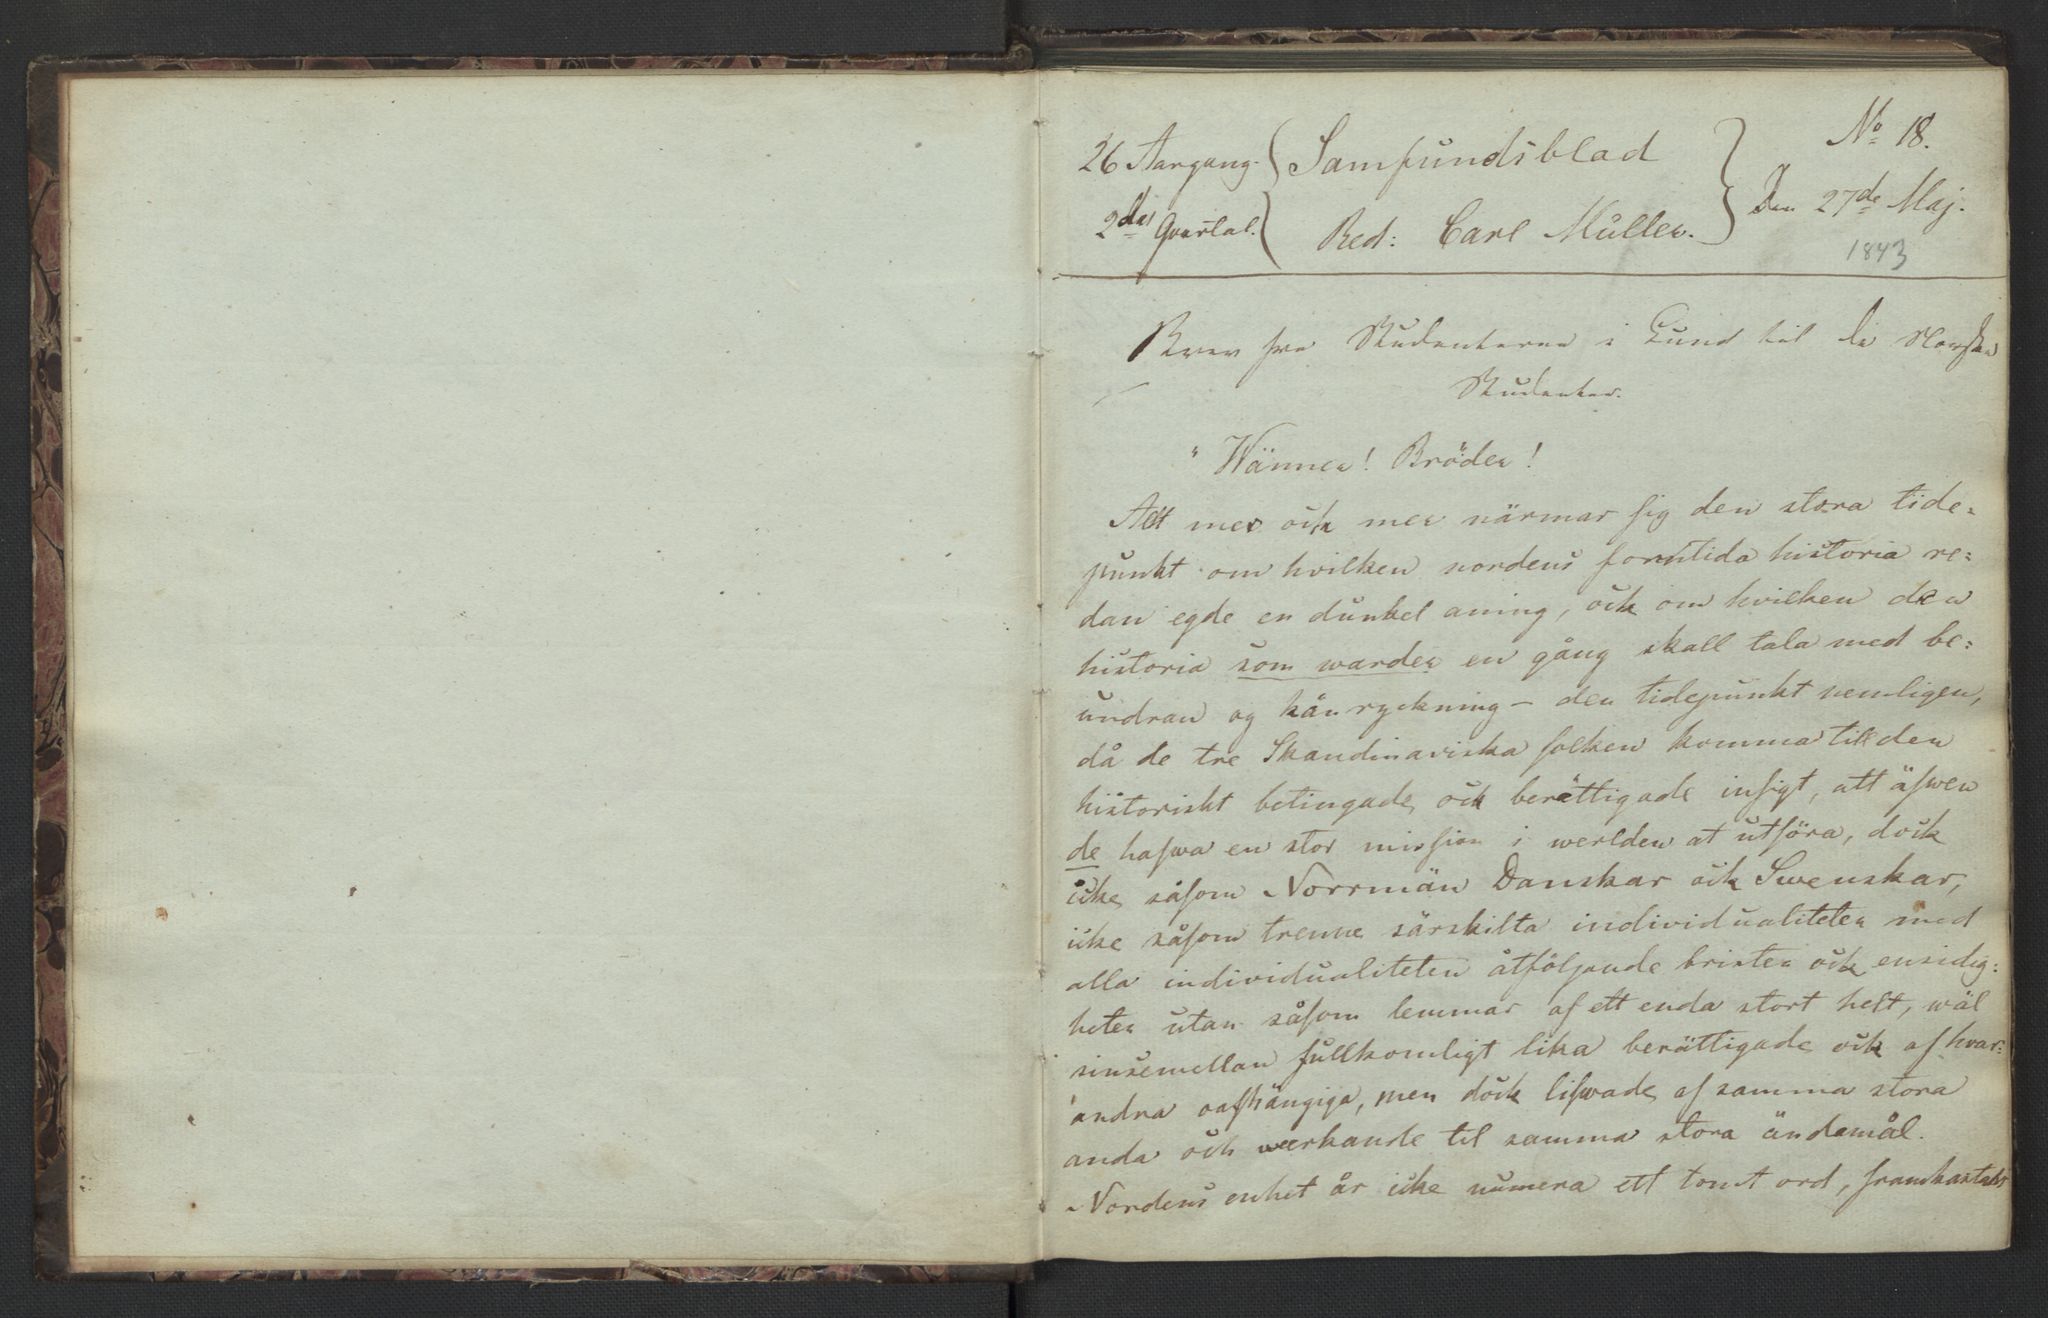 26 Aargang. Samfundsblad No 18.
2det Qvartal. Red: Carl Müller. Den 27de Maj.
1843
Brev fra Studenterne i Lund til de Norske
Studenter.
" Wänner! Bröder!
Allt mer ock mer närmar sig den stora tide=
punkt om hvilken nordens forntida historia re=
dan egde en dunkel aning, ock om hvilken den
historia som warder en gång skall tala med be=
undran og hänryckning – den tidepunkt nemligen,
då de tre Skandinaviska folken komma till den
historiskt betingade ock berättigade insigt, att äfwen
de hafwa en stor mission i werlden at utföra, dock
icke såsom Norrmän Danskar ock Swenskar,
icke såsom trenne särskilta individualiteter med
alla individualiteten åtföljande brister ock ensidig=
heter utan såsom lemmar af ett enda stort helt, wäl
sinsemellan fullkomligt lika berättigade ock af hvar=
andra oafhängiga, men dock lifwade af samma stora
anda och werkande til samma stora ändamål.
Nordens enhet är icke numera ett tomt ord, framkastadt